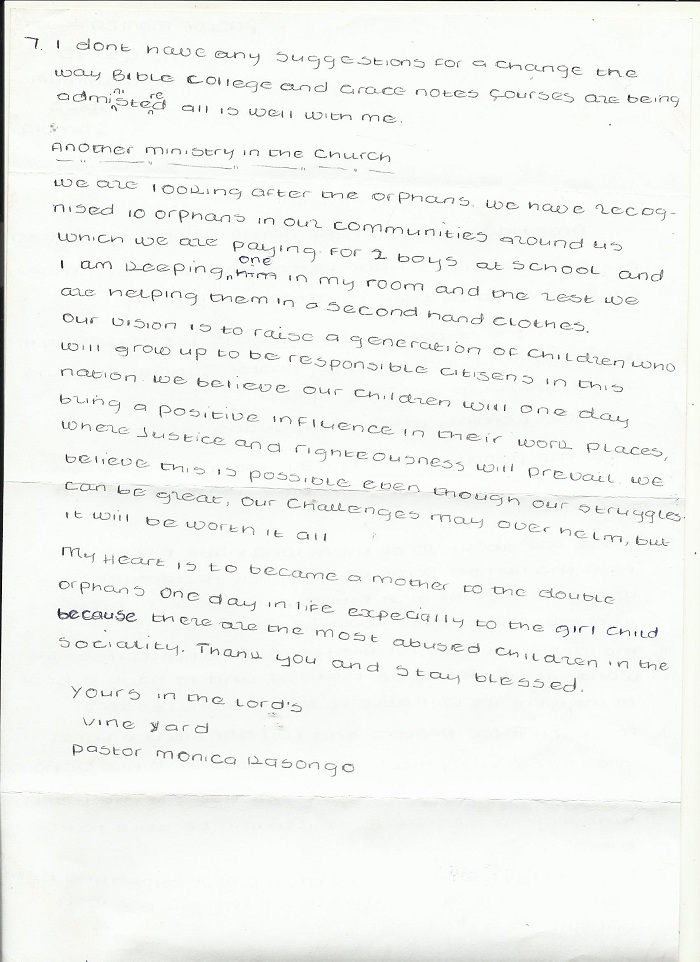 7. I dont have any suggestions for a change the
way Bible College and Grace notes courses are being
administered all is well with me.
Another ministry in the Church
We are looking after the orphans. We have recog-
nised 10 orphans in our communities around us
which we are paying for 2 boys at school and
I am keeping one him in my room and the rest we
are helping them in a second hand clothes.
Our vision is to raise a generation of children who
will grow up to be responsible citisens in this
nation. We believe our children will one day
bring a positive influence in their work places,
where Justice and righteousness will prevail. We
believe this is possible even though our struggles.
can be great, our challenges may over helm, but
it will be worth it all
My Heart is to became a mother to the double
orphans one day in life expecially to the girl child
because there are the most abused children in the
sociality. Thank you and stay blessed.
Yours in the Lord's
Vine yard
Pastor Monica Kasongo